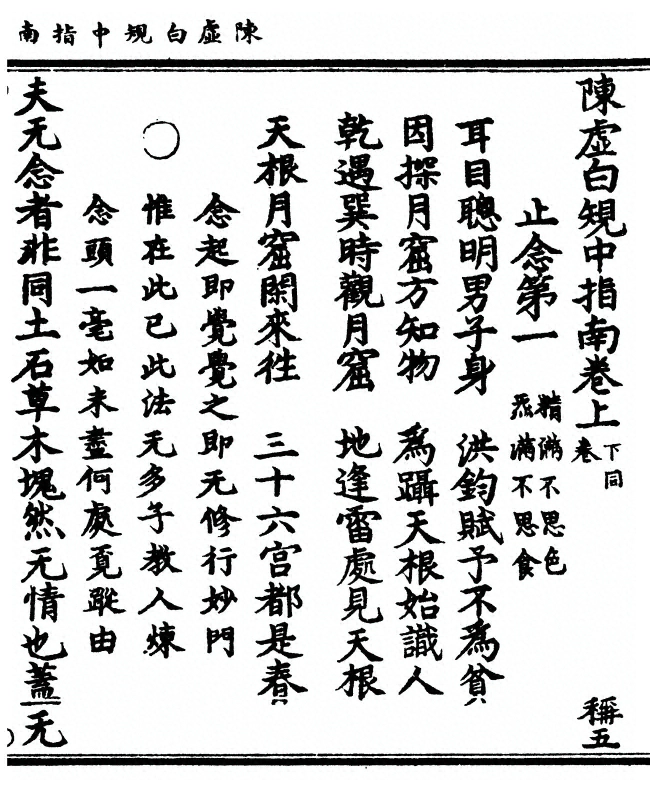 陳虛白規中指南
陳虛白規中指南卷上
下同
卷
稱五
止念第一
精滿不思色
炁滿不思食
耳目聰明男子身　洪鈞賦予不爲貧
因探月窟方知物　爲躡天根始識人
乾遇巽時觀月窟　地逢雷處見天根
天根月窟閑來徃　三十六宮都是春
念起即覺覺之即无修行妙門
惟在此已此法无多子教人煉
念頭一毫如未盡何處覓蹤由
夫无念者非同土石草木塊然无情也蓋无